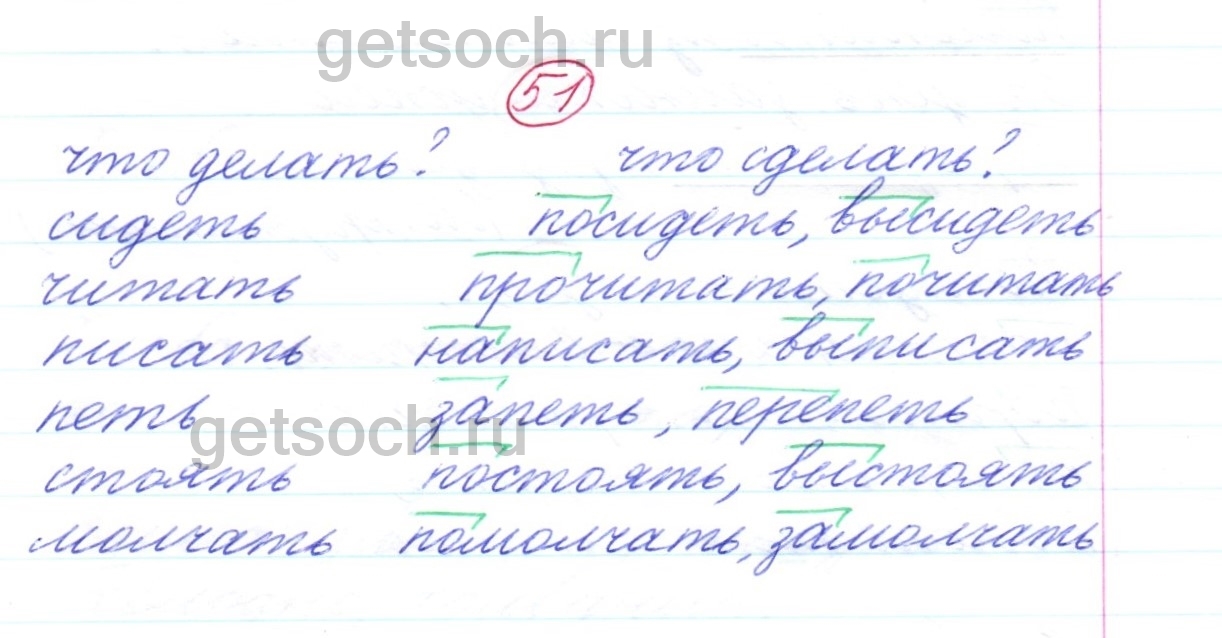 getsoch.ru
51
что делать? что сделать?
сидеть посидеть, высидеть
читать прочитать, почитать
писать написать, выписать
петь запеть, перепеть
getsoch.ru
стоять постоять, выстоять
молчать помолчать, замолчать